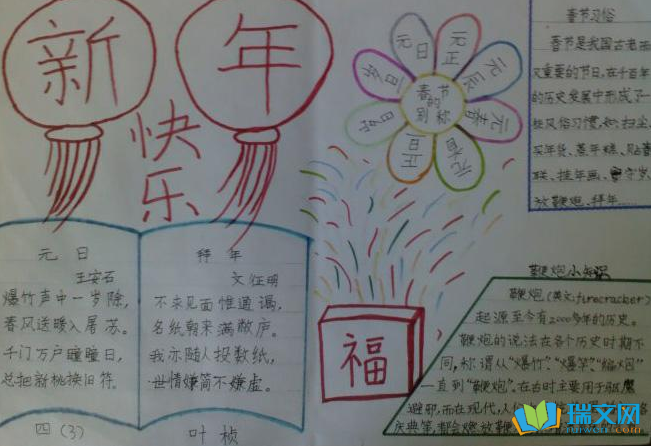 新年
快乐
元日
王安石
爆竹声中一岁除,
春风送暖入屠苏。
千门万户曈曈日,
总把新桃换旧符。
四(3)
拜年
文征明
不求见面惟通谒,
名纸朝来满敝庐。
我亦随人投数纸,
世情嫌简不嫌虚。
叶桢
春节
的
别称
元日
元正
元辰
元春
福
春节习俗
春节是我国古老而
又重要的节日,在千百年
的历史发展中形成了一
些风俗习惯,如扫尘、
买年货、蒸年糕、贴春
联、挂年画、守岁、
放鞭炮、拜年
鞭炮小知识
鞭炮(英文:firecracker)
起源至今有2000多年的历史。
鞭炮的说法在各个历史时期不
同,称谓从“爆竹”、“爆竿”、
一直到“鞭炮”。在古时主要用于驱魔
避邪,而在现代,人们
庆典等,都会燃放鞭
瑞文网